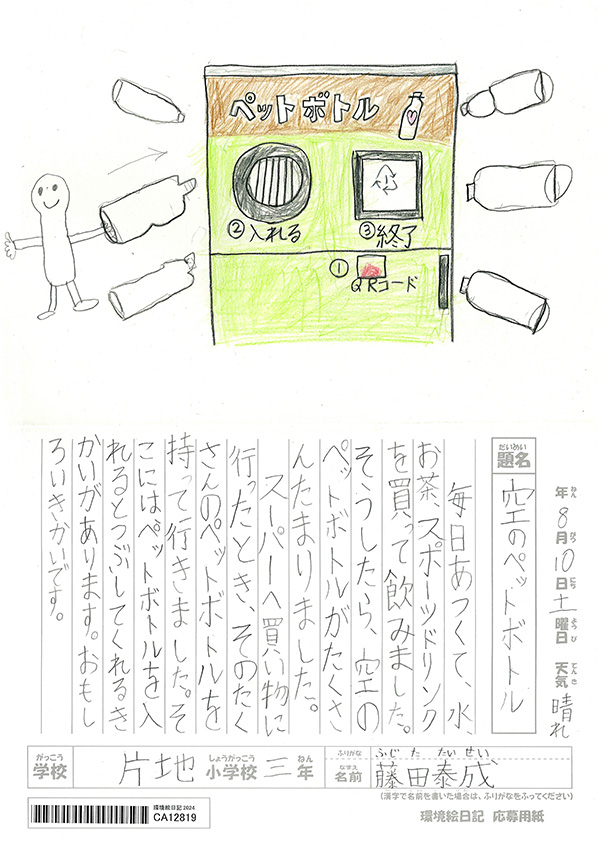 ペットボトル
②入れる
③終了
①
QRコード
年8月10日土曜日 天気 晴れ
ねん がつ にち ようび てんき
だいめい
題名
空のペットボトル
毎日あつくて、水、
お茶、スポーツドリンク
を買って飲みました。
そうしたら、空の
ペットボトルがたくさ
んたまりました。
スーパーへ買い物に
行ったとき、そのたく
さんのペットボトルを
持って行きました。そ
こにはペットボトルを入
れるとつぶしてくれるき
かいがあります。おもし
ろいきかいです。
がっこう しょうがっこう ねん
学校 片地 小学校 三年
ふりがな ふじ た たい せい
なまえ
名前 藤田泰成
(漢字で名前を書いた場合は、ふりがなをふってください)
環境絵日記2024
CA12819
環境絵日記 応募用紙